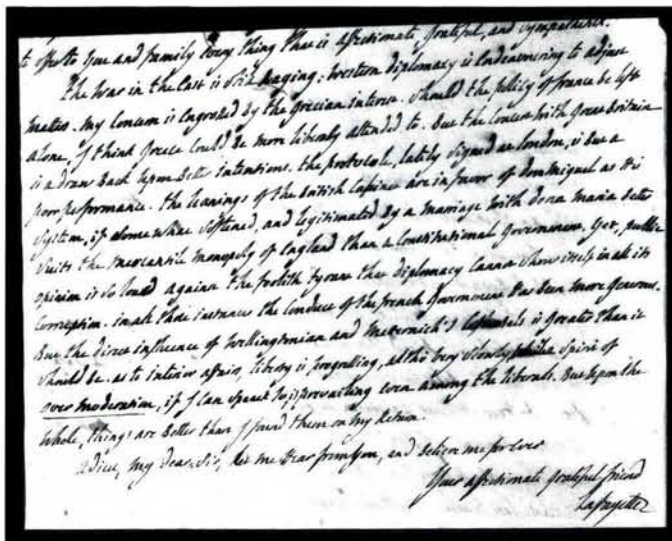 to offer to you and family Every thing that is affectionate, grateful, and sympathetic.
The War in the East is still raging; Western diplomacy is Endeavouring to adjust
matters. My Concern is Engrossed by the Grecian interest. Should the policy of france be left
alone, I think Greece Could be more liberally attended to. But the Concert with Great Britain
is a draw Back upon Better intentions. the protocole, lately signed at london, is But a
poor performance. the leanings of the British Cabinet are in favor of don Miguel as His
System, if some what Softened, and legitimated by a marriage with dona maria better
Suits the mercantile monopoly of England than a Constitutional Government. Yet, public
opinion is so loud against the tyrant that diplomacy Cannot show itself in all its
Corruption. in all those instances the Conduct of the french Government Has Been more generous.
But the direct influence of Wellingtonian and Metternich's is Greater than it
Should Be. as to interior affairs, liberty is progressing, altho very slowly, Spirit of
over moderation, if I can speak so, is prevailing even among the liberals. But upon the
Whole, things are Better than I found them on my Return.
adieu, my dear Sir, let me Hear from you, and Believe me for ever
Your affectionate grateful friend
Lafayette